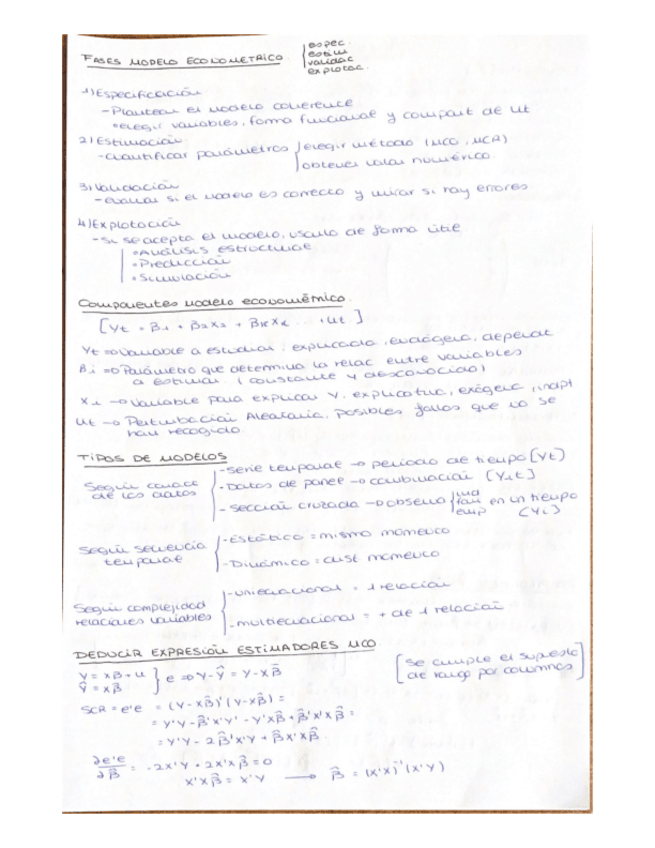 FASES MODELO ECONOMETRICO { espec. estim validac explotac.
1) Especificación
- Plantear el modelo coherente
• elegir variables, forma funcional y comport de Ut
2) Estimación
- cuantificar parámetros { elegir método (MCO, MCR)
obtener valor numérico
3) Validación
- evaluar si el modelo es correcto y mirar si hay errores
4) Explotación
- si se acepta el modelo, usarlo de forma útil
• Análisis estructural
• Predicción
• Simulación
Componentes modelo econométrico
[Yt = β1 + β2X2 + βkXk ... + Ut]
Yt => Variable a estudiar: explicada, endógena, dependt
βi => Parámetro que determina la relac entre variables
a estimar. (constante y desconocido)
Xi -> Variable para explicar Y. explicativa, exógena, indpt
Ut -> Perturbación Aleatoria. posibles fallos que no se
han recogido.
TIPOS DE MODELOS
Según caract de los datos { - Serie temporal -> periodo de tiempo [Yt)
- Datos de panel -> combinación (Yit]
- Sección cruzada -> observa { ind fam emp en un tiempo (Yi)
Según secuencia temporal { - Estático = mismo momento
- Dinámico = dist momento
Según complejidad relaciones variables { - uniecuacional = 1 relación
- multiecuacional = + de 1 relación
DEDUCIR EXPRESIÓN ESTIMADORES MCO
Y = Xβ + u
Ŷ = Xβ̂ } e => Y - Ŷ = Y - Xβ̂ [Se cumple el supuesto de rango por columnas]
SCR = e'e = (Y - Xβ̂)'(Y - Xβ̂) =
= Y'Y - β̂'X'Y' - Y'Xβ̂ + β̂'X'Xβ̂ =
= Y'Y - 2β̂'X'Y + β̂X'Xβ̂
∂e'e/∂β̂ = -2X'Y + 2X'Xβ̂ = 0
X'Xβ̂ = X'Y -> β̂ = (X'X)⁻¹(X'Y)